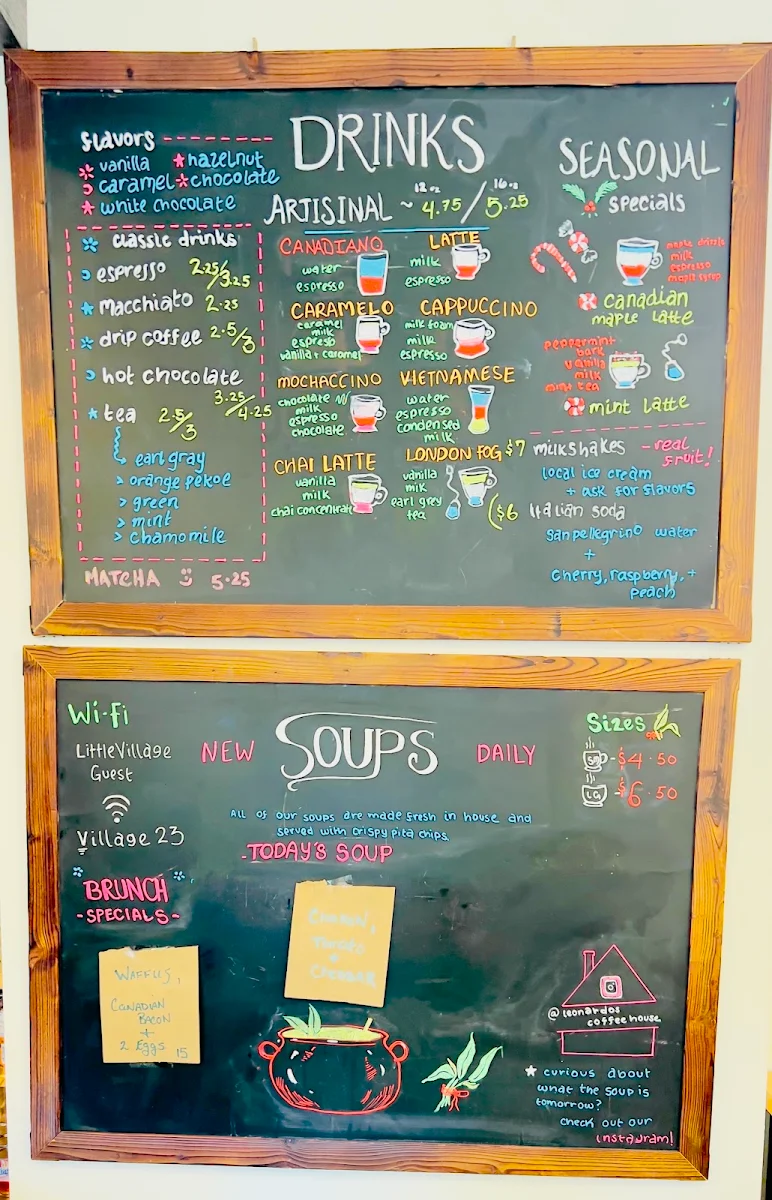 DRINKS
flavors
vanilla
hazelnut
caramel
chocolate
white chocolate
classic drinks
espresso 2.25/3.25
macchiato 2.25
drip coffee 2.5/3
hot chocolate
3.25/4.25
tea 2.5/3
earl gray
> orange pekoe
> green
> mint
> chamomile
MATCHA 5.25
12oz 16oz
ARTISINAL ~ 4.75/5.25
CANADIANO
water
espresso
LATTE
milk
espresso
CARAMELO
caramel
milk
espresso
vanilla + caramel
CAPPUCCINO
milk foam
milk
espresso
MOCHACCINO
chocolate w/
milk
espresso
chocolate
VIETNAMESE
water
espresso
condensed
milk
CHAI LATTE
vanilla
milk
chai concentrate
LONDON FOG
vanilla
milk
earl grey
tea
SEASONAL
specials
maple drizzle
milk
espresso
maple syrup
canadian
maple latte
peppermint
bark
vanilla
milk
mint tea
mint latte
$7 milkshakes - real
fruit!
local ice cream
+ ask for flavors
($6 Italian soda
sanpellegrino water
+
cherry, raspberry, +
peach
Wi-fi
LittleVillage
Guest
Village 23
NEW SOUPS DAILY
All of our soups are made fresh in house and
served with crispy pita chips
-TODAY'S SOUP
Sizes
SM - $4.50
LG - $6.50
BRUNCH
-SPECIALS-
WAFFLES,
CANADIAN
BACON
+
2 EGGS 15
@leonardos
coffeehouse
curious about
what the soup is
tomorrow?
check out our
instagram!